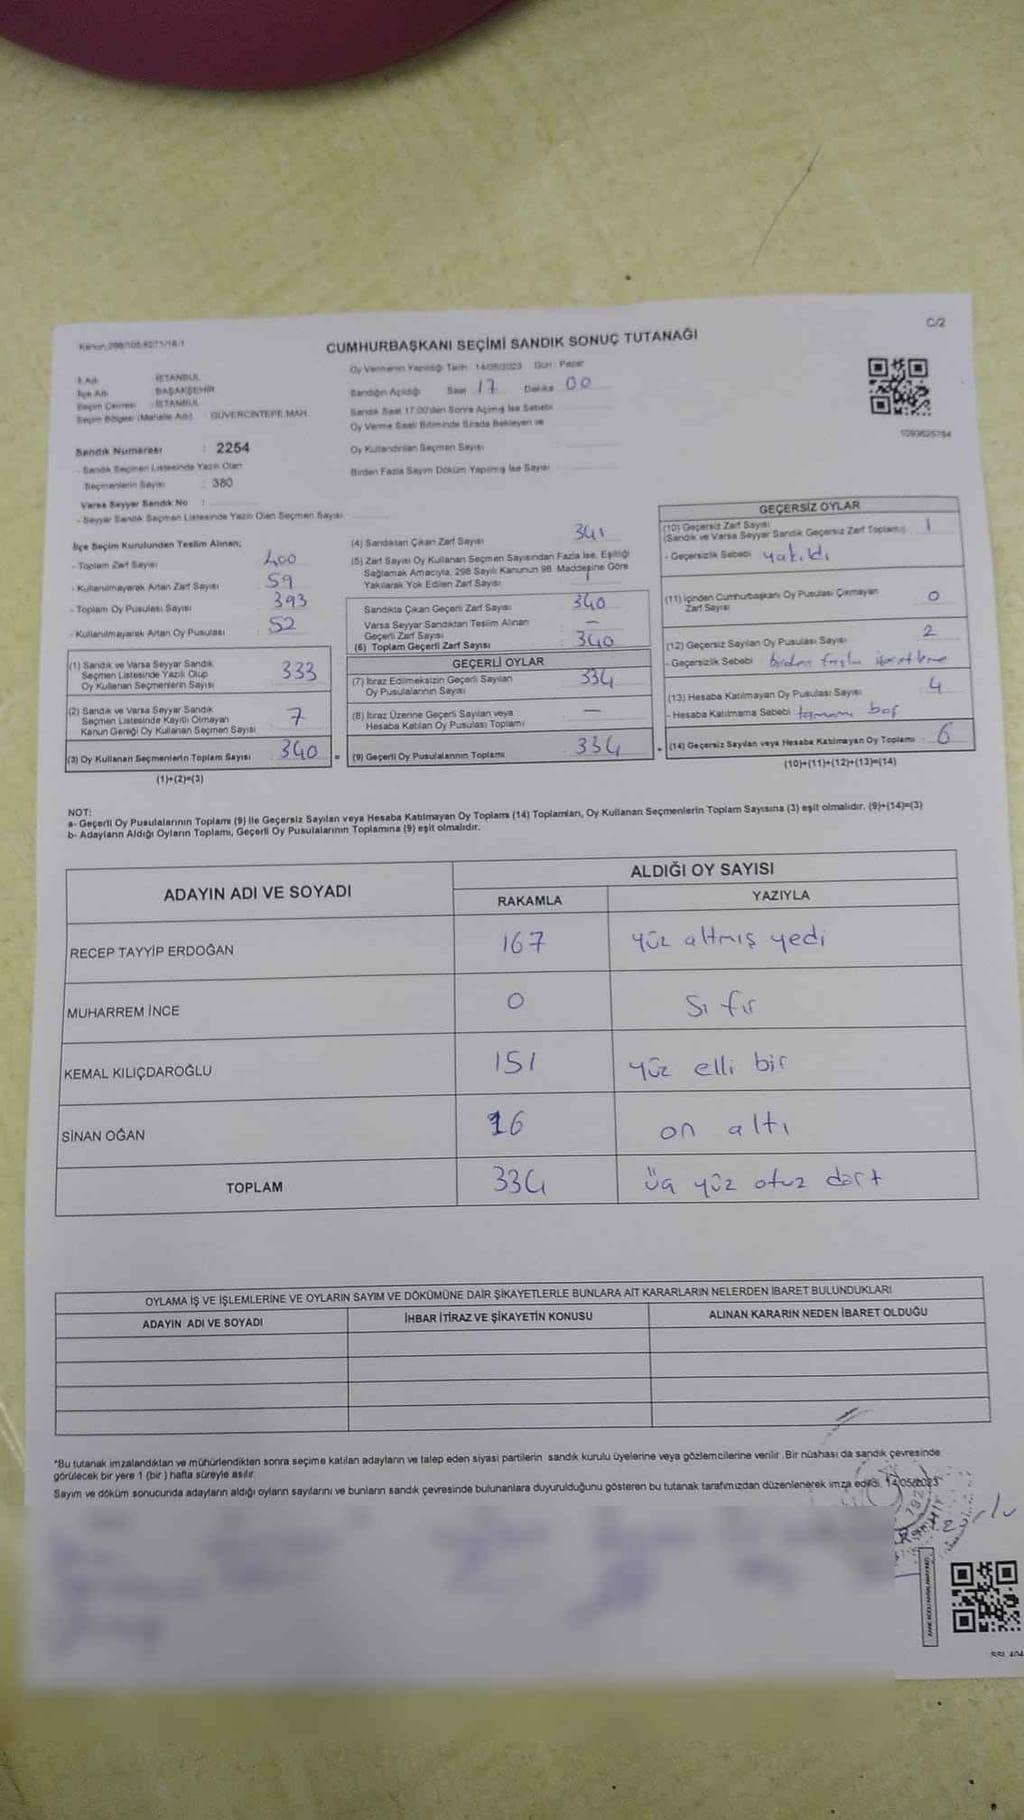 Kanun 298/105 6271/18/1
C/2
CUMHURBAŞKANI SEÇİMİ SANDIK SONUÇ TUTANAĞI
İl Adı İSTANBUL
İlçe Adı BAŞAKŞEHİR
Seçim Çevresi İSTANBUL
Seçim Bölgesi (Mahalle Adı) GÜVERCİNTEPE MAH.
Sandık Numarası : 2254
- Sandık Seçmen Listesinde Yazılı Olan
Seçmenlerin Sayısı : 380
Varsa Seyyar Sandık No :
- Seyyar Sandık Seçmen Listesinde Yazılı Olan Seçmen Sayısı
Oy Vermenin Yapıldığı Tarih : 14/05/2023 Gün : Pazar
Sandığın Açıldığı Saat 17 Dakika 00
Sandık Saat 17.00'den Sonra Açılmış İse Sebebi
Oy Verme Saati Bitiminde Sırada Bekleyen ve
Oy Kullandırılan Seçmen Sayısı
Birden Fazla Sayım Döküm Yapılmış İse Sayısı
İlçe Seçim Kurulundan Teslim Alınan;
- Toplam Zarf Sayısı 400
- Kullanılmayarak Artan Zarf Sayısı 59
- Toplam Oy Pusulası Sayısı 393
- Kullanılmayarak Artan Oy Pusulası 52
(1) Sandık ve Varsa Seyyar Sandık
Seçmen Listesinde Yazılı Olup
Oy Kullanan Seçmenlerin Sayısı 333
(2) Sandık ve Varsa Seyyar Sandık
Seçmen Listesinde Kayıtlı Olmayan
Kanun Gereği Oy Kullanan Seçmen Sayısı 7
(3) Oy Kullanan Seçmenlerin Toplam Sayısı 340 =
(1)+(2)=(3)
(4) Sandıktan Çıkan Zarf Sayısı 341
(5) Zarf Sayısı Oy Kullanan Seçmen Sayısından Fazla İse, Eşitliği
Sağlamak Amacıyla, 298 Sayılı Kanunun 98. Maddesine Göre
Yakılarak Yok Edilen Zarf Sayısı 1
Sandıkta Çıkan Geçerli Zarf Sayısı 340
Varsa Seyyar Sandıktan Teslim Alınan
Geçerli Zarf Sayısı —
(6) Toplam Geçerli Zarf Sayısı 340
GEÇERLİ OYLAR
(7) İtiraz Edilmeksizin Geçerli Sayılan
Oy Pusulalarının Sayısı 334
(8) İtiraz Üzerine Geçerli Sayılan veya
Hesaba Katılan Oy Pusulası Toplamı —
(9) Geçerli Oy Pusulalarının Toplamı 334 +
GEÇERSİZ OYLAR
(10) Geçersiz Zarf Sayısı
(Sandık ve Varsa Seyyar Sandık Geçersiz Zarf Toplamı) 1
- Geçersizlik Sebebi yakıldı
(11) İçinden Cumhurbaşkanı Oy Pusulası Çıkmayan
Zarf Sayısı 0
(12) Geçersiz Sayılan Oy Pusulası Sayısı 2
- Geçersizlik Sebebi birden fazla
(13) Hesaba Katılmayan Oy Pusulası Sayısı 4
- Hesaba Katılmama Sebebi tamamı boş
(14) Geçersiz Sayılan veya Hesaba Katılmayan Oy Toplamı 6
(10)+(11)+(12)+(13)=(14)
NOT:
a- Geçerli Oy Pusulalarının Toplamı (9) ile Geçersiz Sayılan veya Hesaba Katılmayan Oy Toplamı (14) Toplamları, Oy Kullanan Seçmenlerin Toplam Sayısına (3) eşit olmalıdır. (9)+(14)=(3)
b- Adayların Aldığı Oyların Toplamı, Geçerli Oy Pusulalarının Toplamına (9) eşit olmalıdır.
ADAYIN ADI VE SOYADI
ALDIĞI OY SAYISI
RAKAMLA YAZIYLA
RECEP TAYYİP ERDOĞAN 167 yüz altmış yedi
MUHARREM İNCE 0 sıfır
KEMAL KILIÇDAROĞLU 151 yüz elli bir
SİNAN OĞAN 16 on altı
TOPLAM 334 üç yüz otuz dört
OYLAMA İŞ VE İŞLEMLERİNE VE OYLARIN SAYIM VE DÖKÜMÜNE DAİR ŞİKAYETLERLE BUNLARA AİT KARARLARIN NELERDEN İBARET BULUNDUKLARI
ADAYIN ADI VE SOYADI İHBAR İTİRAZ VE ŞİKAYETİN KONUSU ALINAN KARARIN NEDEN İBARET OLDUĞU
*Bu tutanak imzalandıktan ve mühürlendikten sonra seçime katılan adayların ve talep eden siyasi partilerin sandık kurulu üyelerine veya gözlemcilerine verilir. Bir nüshası da sandık çevresinde
görülecek bir yere 1 (bir) hafta süreyle asılır.
Sayım ve döküm sonucunda adayların aldığı oyların sayılarını ve bunların sandık çevresinde bulunanlara duyurulduğunu gösteren bu tutanak tarafımızdan düzenlenerek imza edildi. 14/05/2023